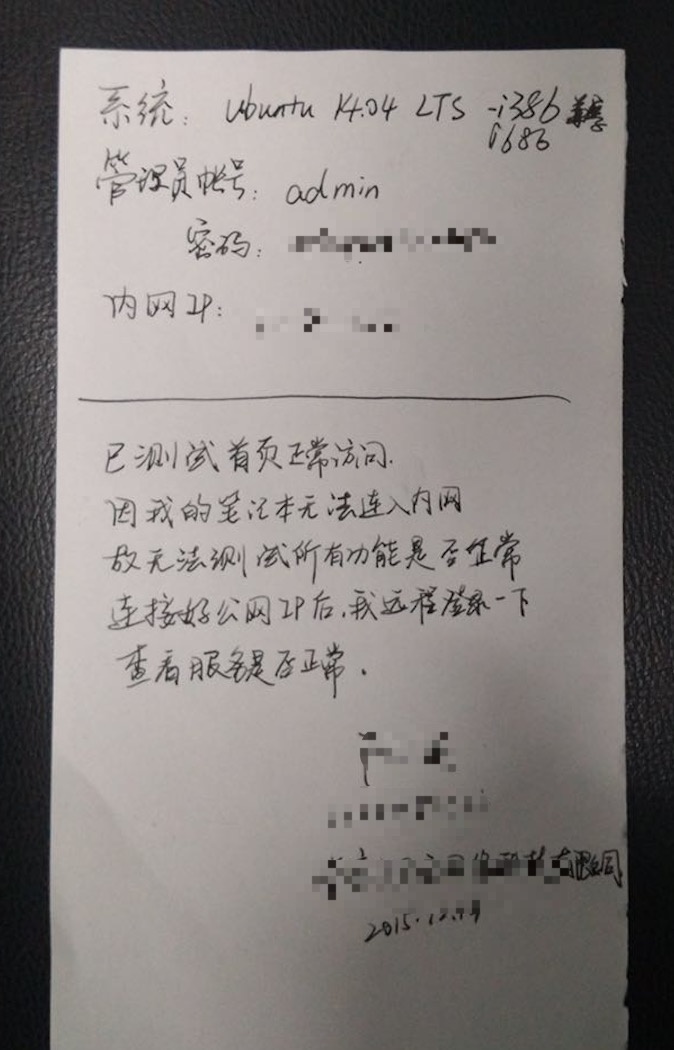 系统: Ubuntu 14.04 LTS -i386
i686
管理员帐号: admin
密码:
内网IP:
已测试首页正常访问.
因我的笔记本无法连入内网
故无法测试所有功能是否正常
连接好公网IP后,我远程登录一下
查看服务是否正常.
2015.12.